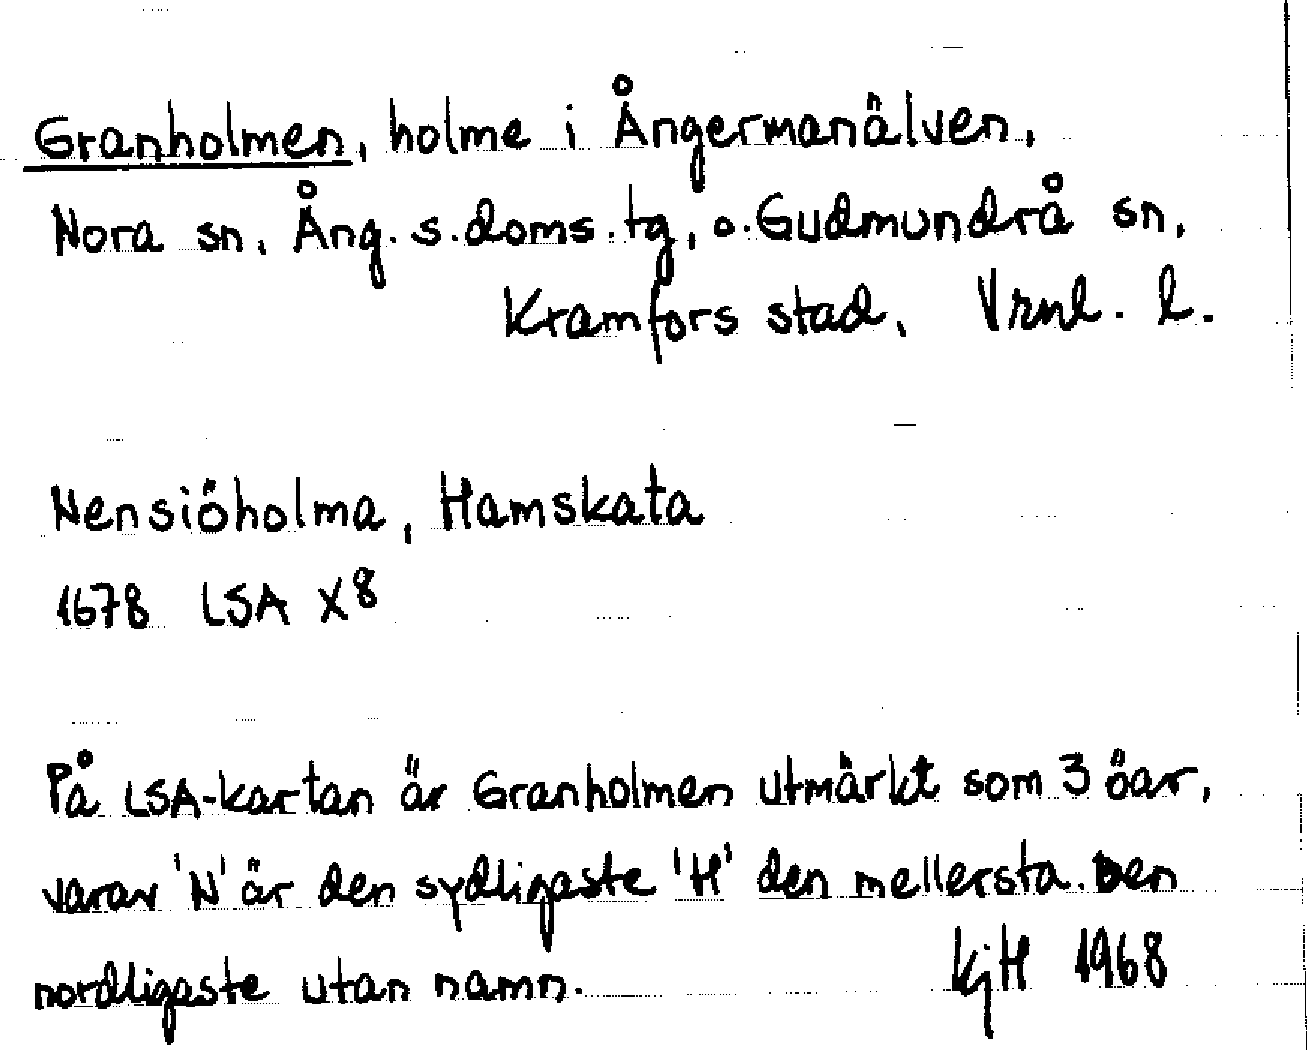 Granholmen, holme i Ångermanälven,
Nora sn, Ång. s. doms. tg, o. Gudmundrå sn,
Kramfors stad, Vrnl. l.
Nensiöholma, Hamskata
1678 LSA X8
På LSA-kartan är Granholmen utmärkt som 3 öar,
varav 'N' är den sydligaste 'H' den mellersta. Den
nordligaste utan namn. KjH 1968